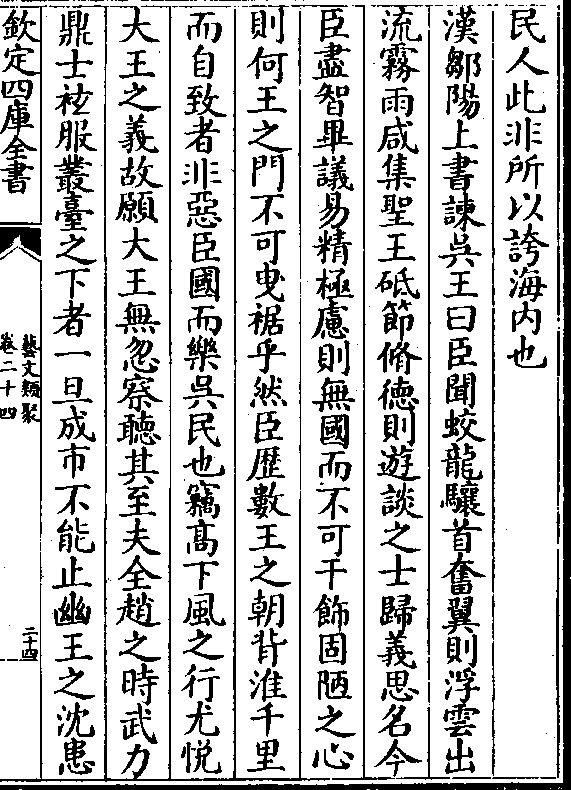 民人此非所以誇海内也
漢鄒陽上書諫吳王曰臣聞蛟龍驤首奮翼則浮雲出
流霧雨咸集聖王砥節脩德則遊談之士歸義思名今
臣盡智畢議易精極慮則無國而不可干飾固陋之心
則何王之門不可曳裾乎然臣歷數王之朝背淮千里
而自致者非惡臣國而樂吳民也竊髙下風之行尤悅
大王之義故願大王無忽察聽其至夫全趙之時武力
鼎士袨服叢臺之下者一旦成市不能止幽王之沈患
欽定四庫全書
藝文類聚
卷二十四
二十四